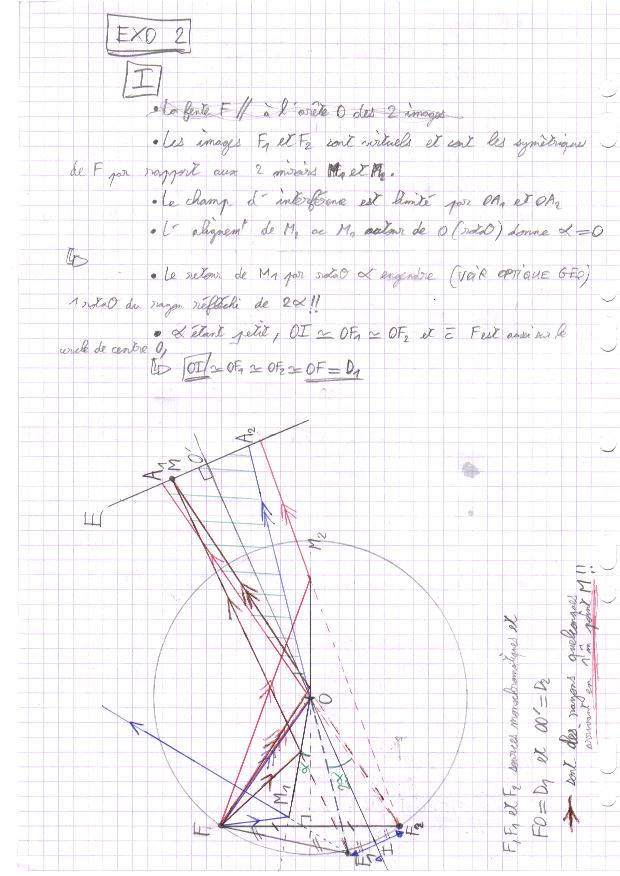 EXO 2
I
• La fente F // à l'arête O des 2 images
• Les images F1 et F2 sont virtuels et sont les symétriques
de F par rapport aux 2 miroirs M1 et M2.
• Le champ d'interférence est limité par OA1 et OA2
• L'alignemt de M2 ac M1 autour de O (rotaO) donne α = 0
• Le retour de M1 par rotaO α engendre (VOIR OPTIQUE GEO)
1 rotaO du rayon réfléchi de 2α !!
• α étant petit, OI ≃ OF1 ≃ OF2 et c̄ F est aussi sur le
cercle de centre O,
OI ≃ OF1 ≃ OF2 ≃ OF = D1
E
A1
M
O'
A2
M2
O
M1
α
2α
F
F1
I
F2
F, F1 et F2 sources monochromatiques et
FO = D1 et OO' = D2
sont des rayons quelconques
arrivant en 1 m̂ point M !!